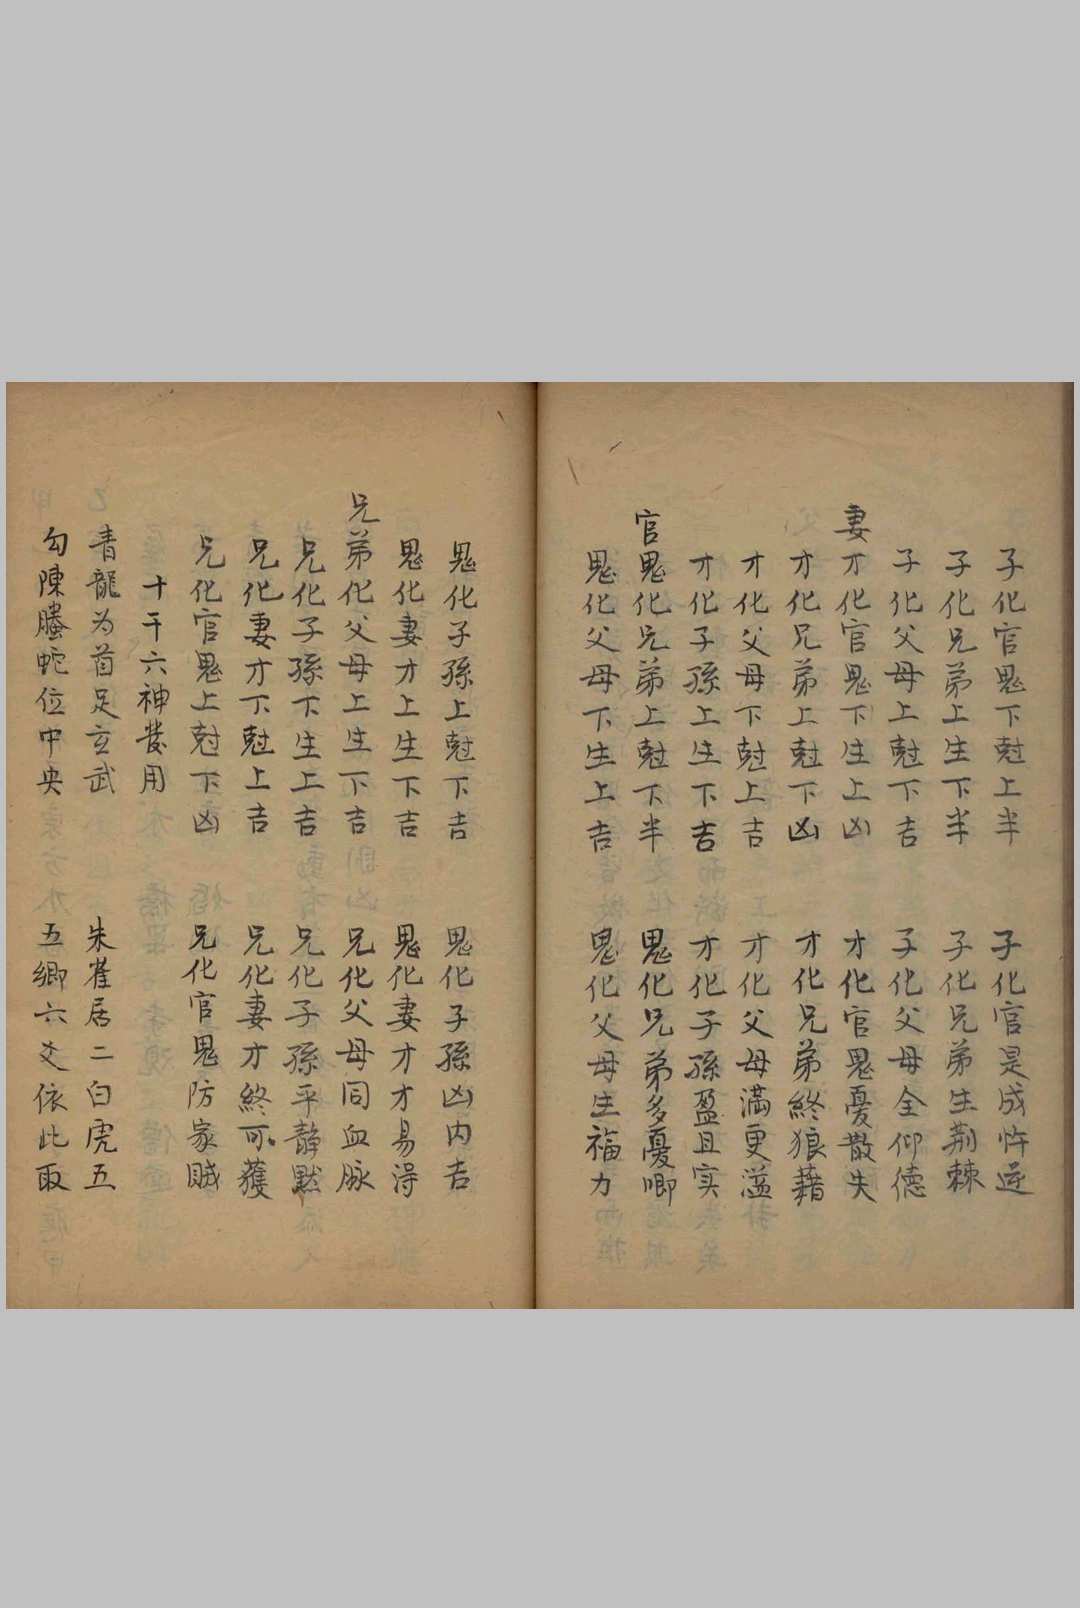 子化官鬼下尅上半 子化官是成忤逆
子化兄弟上生下半 子化兄弟生荆棘
子化父母上尅下吉 子化父母全仰德
妻才化官鬼下生上凶 才化官鬼憂散失
才化兄弟上尅下凶 才化兄弟終狼藉
才化父母下尅上吉 才化父母滿更溢
才化子孫上生下吉 才化子孫盈且实
官鬼化兄弟上尅下半 鬼化兄弟多憂唧
鬼化父母下生上吉 鬼化父母生福力
鬼化子孫上尅下吉 鬼化子孫凶内吉
鬼化妻才上生下吉 鬼化妻才才易淂
兄弟化父母上生下吉 兄化父母同血脉
兄化子孫下生上吉 兄化子孫平靜默
兄化妻才下尅上吉 兄化妻才終可獲
兄化官鬼上尅下凶 兄化官鬼防家贼
十干六神發用
青龍为首足玄武 朱雀居二白虎五
勾陳螣蛇位中央 五鄉六爻依此取